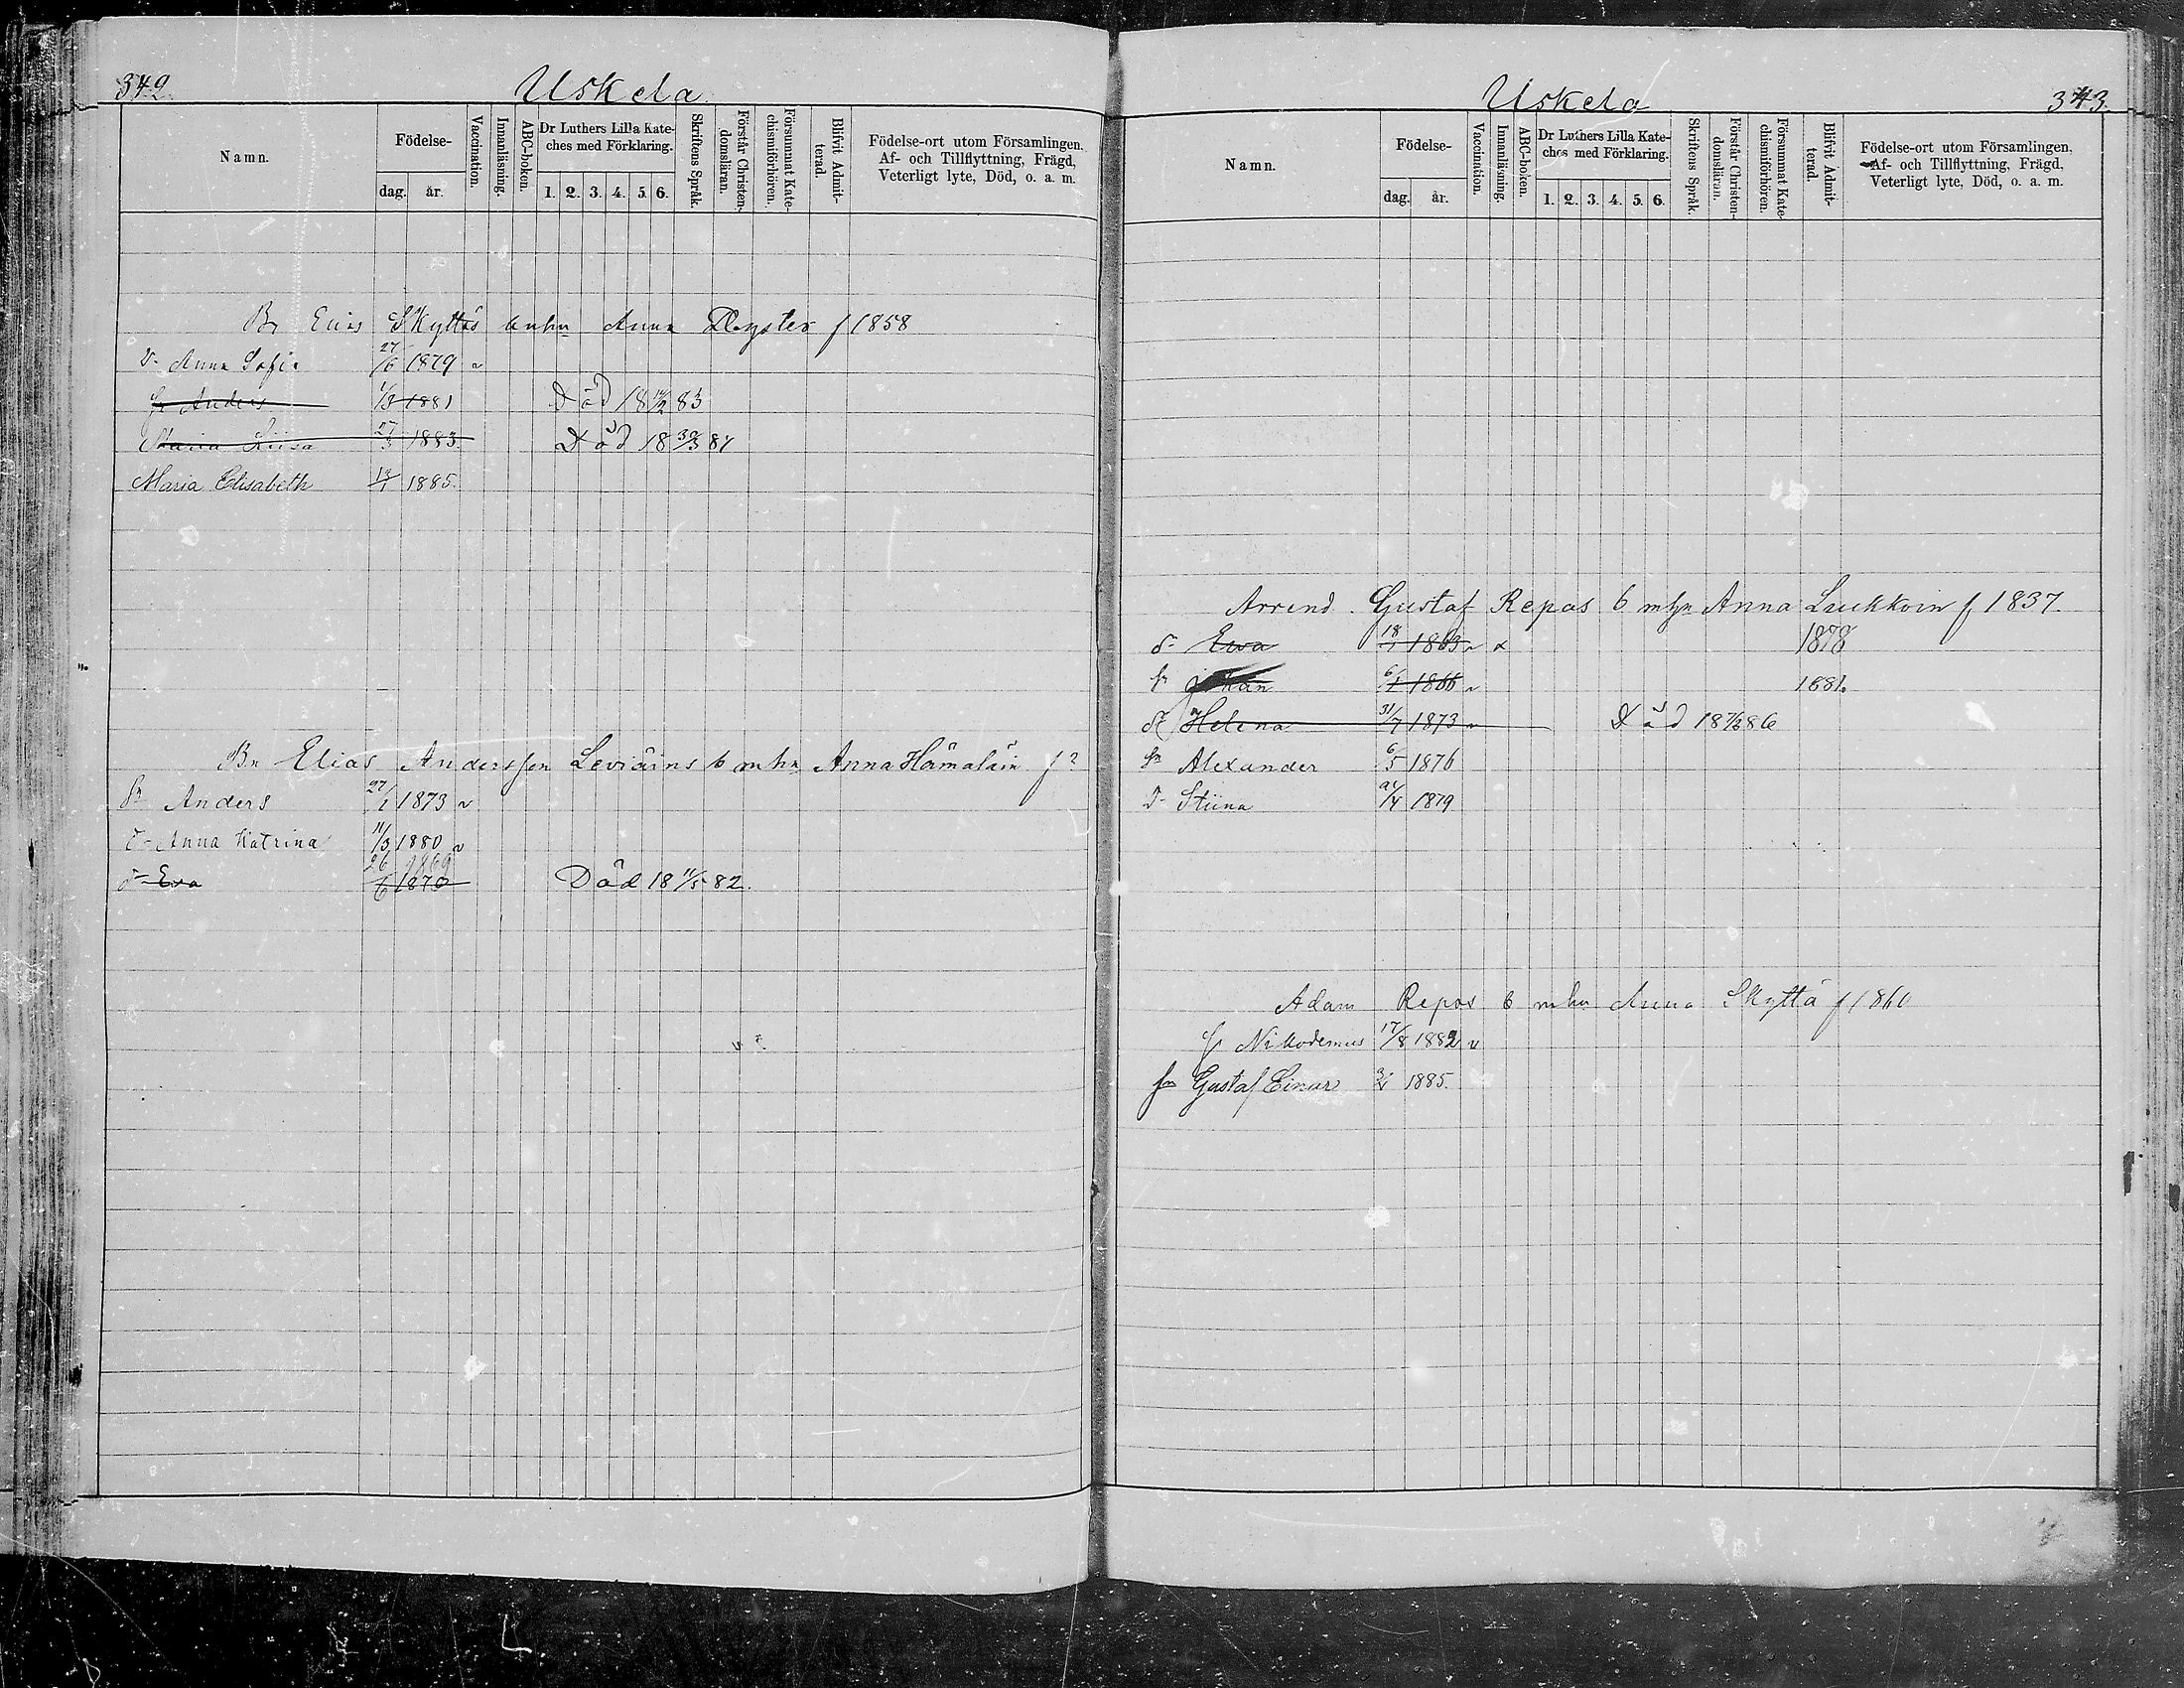 342
Uskela
Namn.
Födelse-
dag. år.
Vaccination.
Innanläsning.
ABC-boken.
Dr Luthers Lilla Kate-
ches med Förklaring.
1. 2. 3. 4. 5. 6.
Skriftens Språk.
Förstår Christen-
domsläran.
Försummat Kate-
chismiförhören.
Blifvit Admit-
terad.
Födelse-ort utom Församlingen.
Af- och Tillflyttning, Frägd,
Veterligt lyte, Död, o. a. m.
Skyttäs Anna f 1858
Anna Sofia 27/6 1879
Anders 1881 Död
Maria Liisa 27/3 1883. Död
Maria Elisabeth 1885.
Bn Elias Andersson Leviäins 6 mhn Anna Hämäläin f ?
Anders 27/1 1873
Anna Katrina 11/3 1880
26 1869
Eva 6 1870 Död 18 11/5 82.
Uskela
343.
Namn.
Födelse-
dag. år.
Vaccination.
Innanläsning.
ABC-boken.
Dr Luthers Lilla Kate-
ches med Förklaring.
1. 2. 3. 4. 5. 6.
Skriftens Språk.
Förstår Christen-
domsläran.
Försummat Kate-
chismiförhören.
Blifvit Admit-
terad.
Födelse-ort utom Församlingen,
Af- och Tillflyttning, Frägd,
Veterligt lyte, Död, o. a. m.
Arrend. Gustaf Repos 6 mhn Anna Luukkoin f 1837.
Ewa 18/1 1863 1878
Johan 6/1 1866 1881.
Helena 31/7 1873 Död
Alexander 6/5 1876
Stiina 1879
Adam Repos 6 mhn Anna Skyttä f 1860
Nikodemus 17/8 1882
Gustaf Einar 1885.